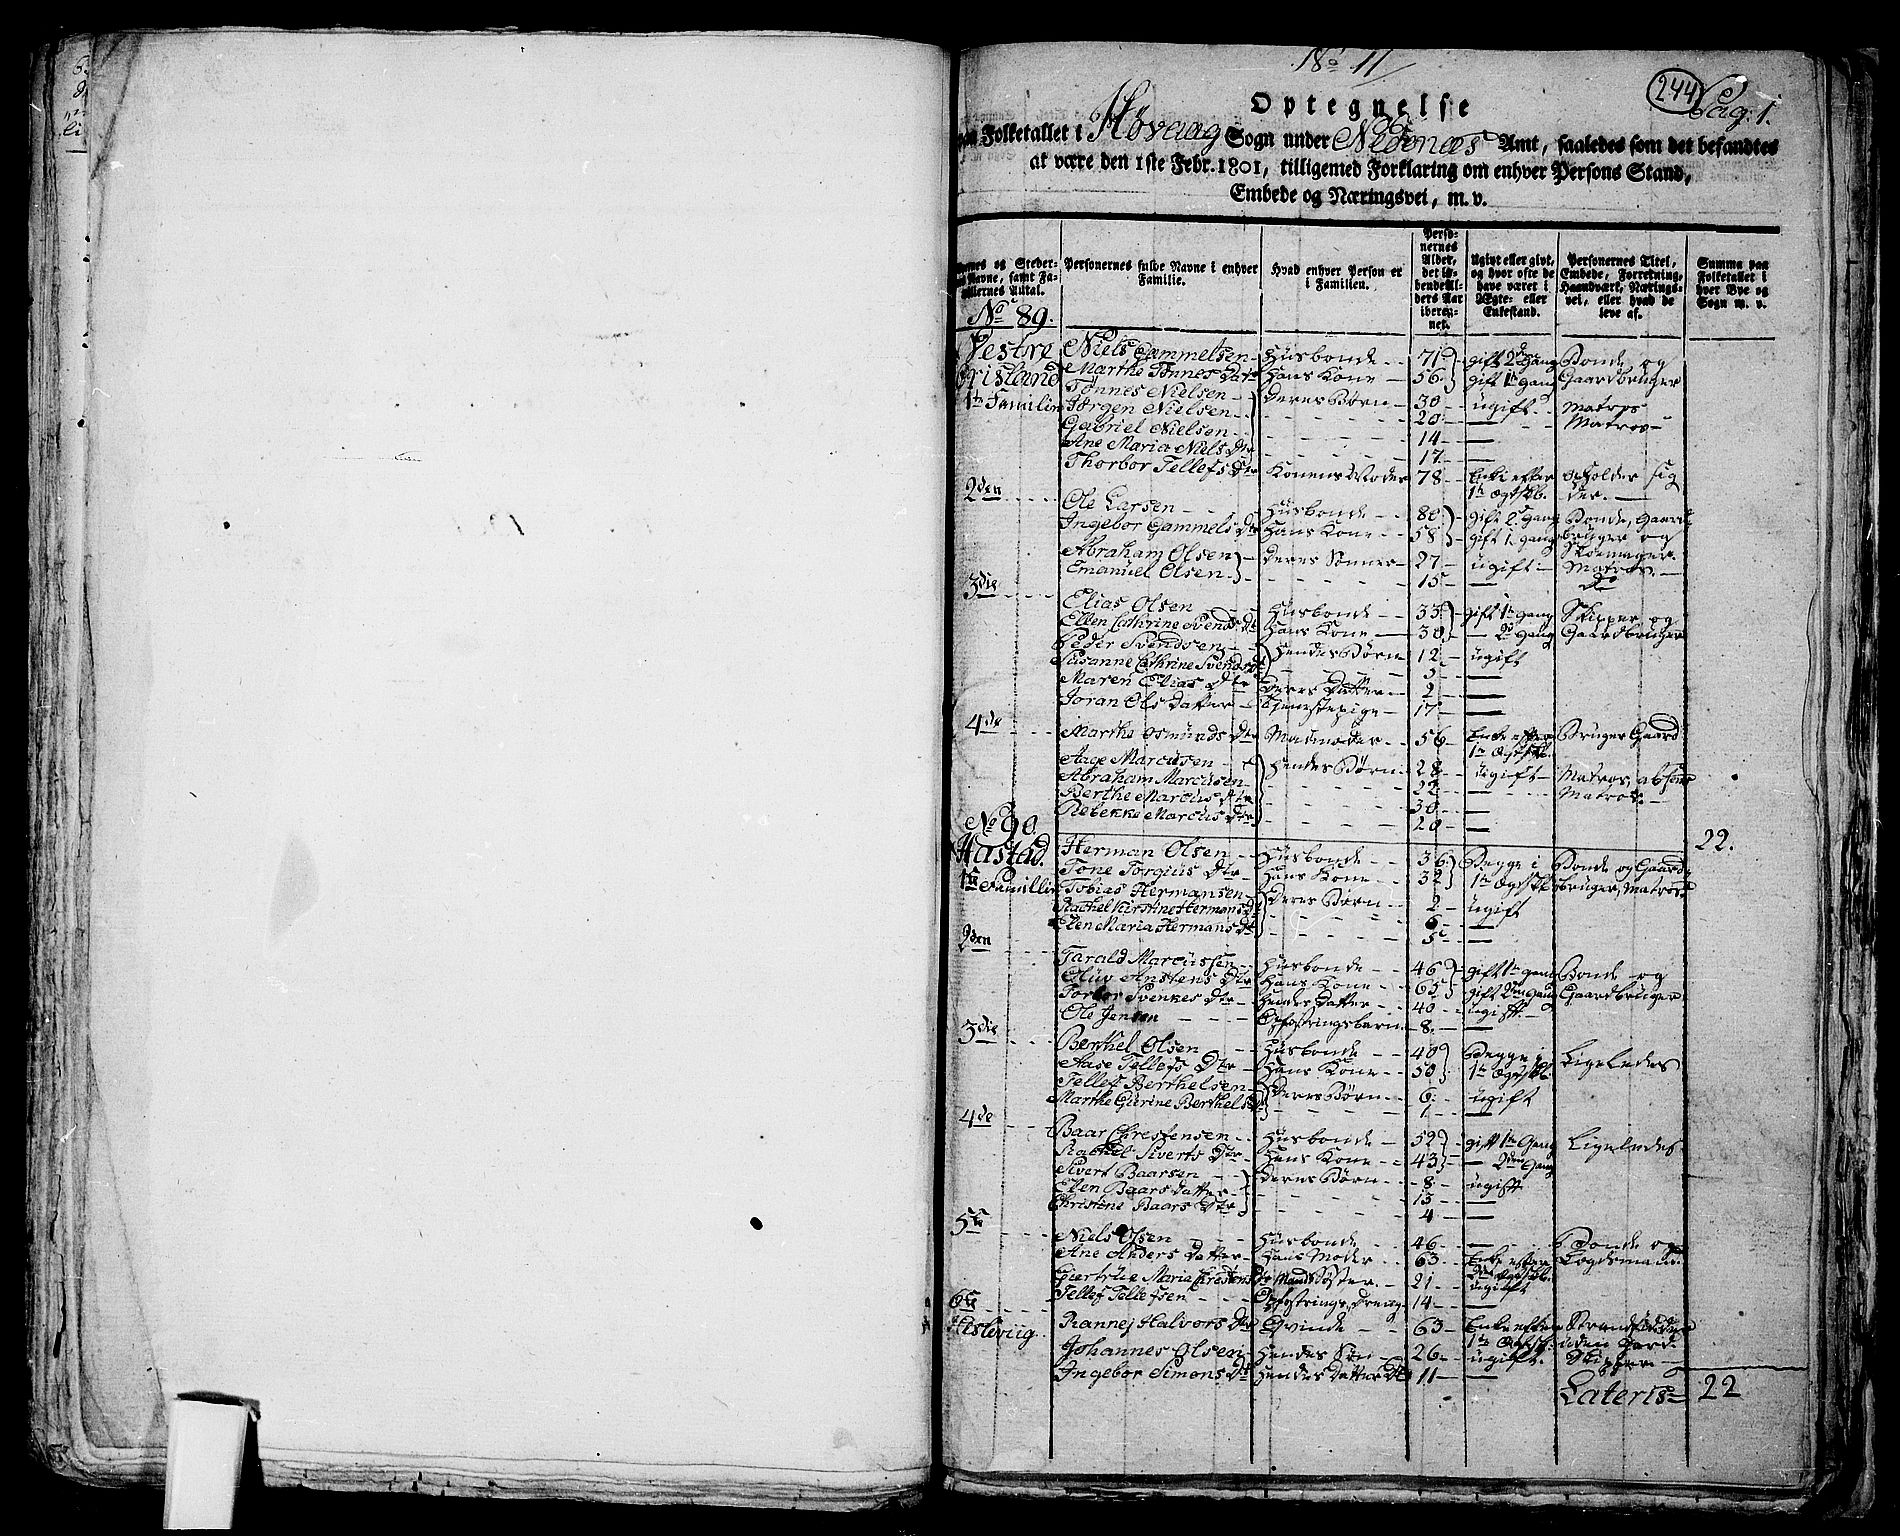 No 11
244
Pag. 1.
Optegnelse
Folketallet i Høvaag Sogn under Nedenæs Amt, saaledes som det befandtes
at være den 1ste Febr. 1801, tilligemed Forklaring om enhver Persons Stand,
Embede og Næringsvei, m. v.
Personernes fulde Navne i enhver Familie.
Hvad enhver Person er i Familien.
Personernes Alder, det løbende Alders Aar iberegnet.
Ugivt eller givt, og hvor ofte de have været i Ægte- eller Enkestand.
Personernes Titel, Embede, Forretning, Haandværk, Næringsvei, eller hvad de leve af.
Summa paa Folketallet i hver Bye og Sogn m. v.
No 89.
Vestre Niels Gammelsen Husbonde 71 gift 2den Gang Bonde og
Marthe Tønnes Datr Hans Kone 56 gift 1te gang Gaardbruger
1te Familie Tønnes Nielsen Deres Børn 30 ugift Matros
Jørgen Nielsen 20 Matros
Gabriel Nielsen 14
Ane Maria Niels Dtr 17
Thorbor Tellefs Dtr Konens Moder 78 Enke efter opholder sig
2den 1te Ægtsk. der.
Ole Larsen Husbonde 80 gift 2 Gang Bonde, Gaard
Ingebor Gammels Dtr Hans Kone 58 gift 1 gang bruger og
Abraham Olsen Deres Sønner 27 ugift Skomager
Emanuel Olsen 15 Matros
3die Do
Elias Olsen Husbonde 33 gift 1te gang Skipper og
Ellen Cathrine Svends Dtr Hans Kone 30 2d Gang Gaardbruger
Peder Svendsen Hendes Børn 12 ugift
Susanne Cathrine Svends Dt 5
Maren Elias Dtr Deres Datter 2
Joran Ols Datter Tjenestepige 17
4de
Marthe Osmunds Dtr Madmoder 56 Enke efter Bruger Gaard
1te Ægtsk.
Aage Marcusen Hendes Børn 28 ugift Matros, absent
Abraham Marcusen 22 Matros
Berthe Marcus Dtr 30
Rebekke Marcus Dtr 20
No 90. 22.
Hastad. Herman Olsen Husbonde 36 Begge i Bonde og Gaard
Tone Torgius Dtr Hans Kone 32 1te Ægtsk. bruger, Matros
1te Familie Tobias Hermansen Deres Børn 2 ugift
Rachel Kirstine Hermans D 6
Elen Maria Hermans Dt 5
2den
Tarald Marcussen Husbonde 46 gift 1te gang Bonde og
Oluv Anstens Dtr Hans Kone 65 gift 2den gang Gaardbruger
Torbor Svenkes Dtr Hendes Datter 40 ugift
Ole Jensen Opfostringsbarn 8
3die
Berthel Olsen Husbonde 40 Begge i Ligeledes
Aase Tellefs Dtr Hans Kone 50 1te Ægtsk.
Tellef Berthelsen Deres Børn 6 ugift
Marthe Gurine Berthels Dt 1
4de
Baar Christensen Husbonde 52 gift 1te Gang Ligeledes
Rachel Siverts Dtr Hans Kone 43 2den Gang
Sivert Baarsen Deres Børn 8 ugift
Elen Baars Datter 13
Christine Baars Dtr 4
5te
Niels Olsen Husbonde 46 Bonde og
Ane Anders Datter Hans Moder 63 Enke efter Lodsmand
Giertrue Maria Christens Dtr Mands Søster 21 ugift
Tellef Tellefsen Opfostrings Dreng 14
6te
Rannej Halvors Dtr Qvinde 63 Enke efter Strandsidder
1te Ægtsk. uden Jord.
Johannes Olsen Hendes Søn 26 ugift. Skipper
Ingebor Simons Dt Hendes Datter Dtr 11
Lateris 22